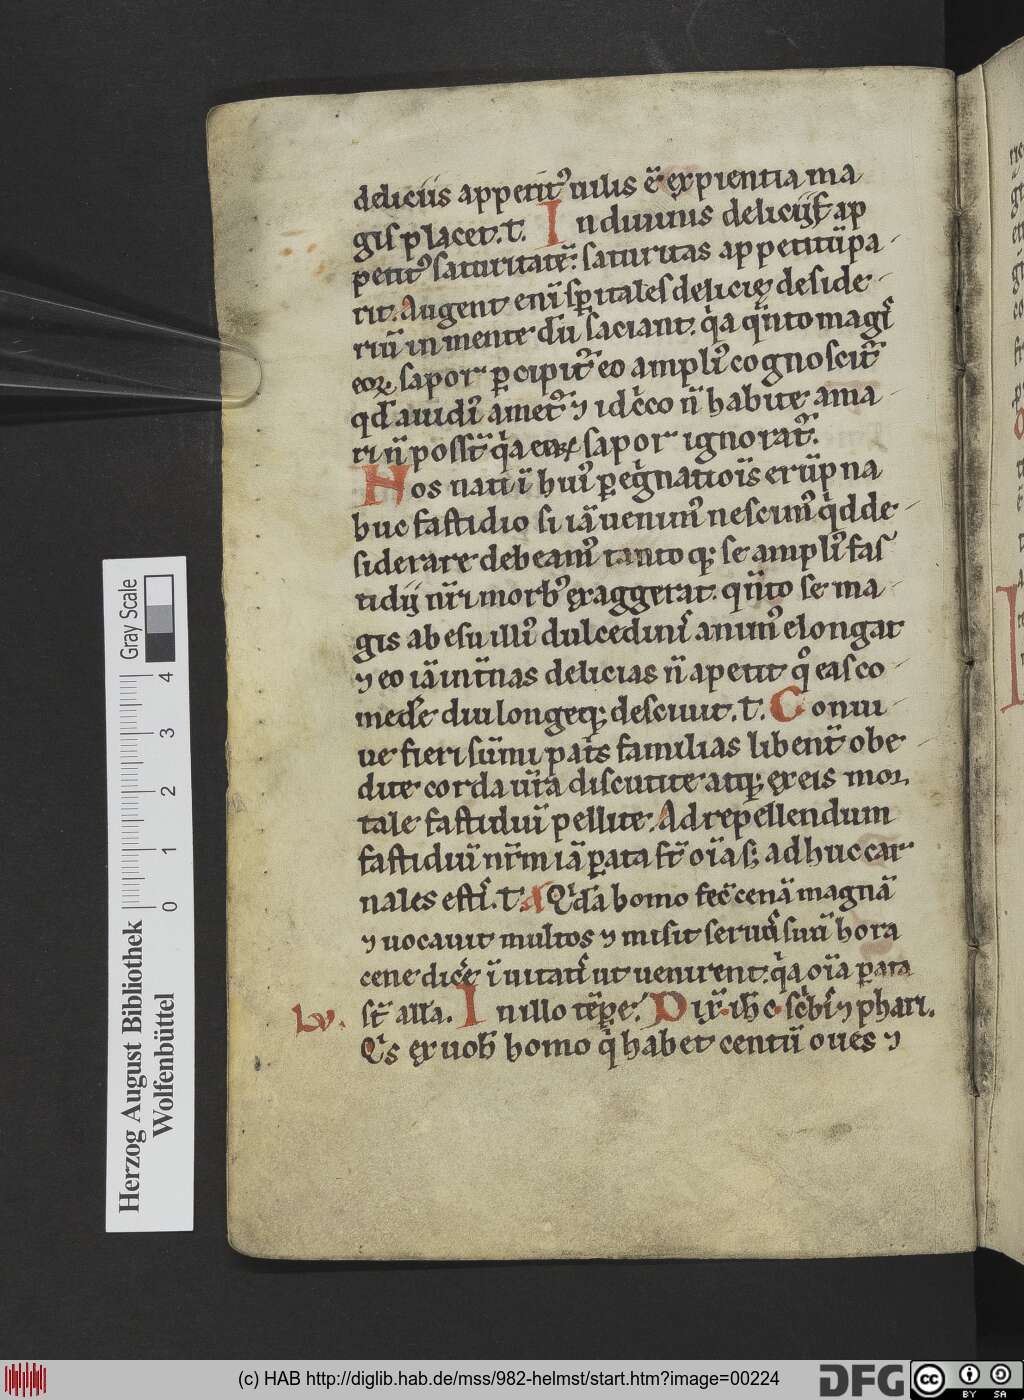 deliciis appetit᷒ uilis ē exꝑientia ma
gis placet. t̄. In diuinis deliciis ap
petit᷒ saturitatē. saturitas appetitū pa
rit. Augent enī sp̄itales delicię deside
riū in mente dū saciant. q̓a q̄nto magi᷒
eoꝝ sapor ꝑcipit᷒ eo ampli᷒ cognoscit᷒
qd̄ auidi᷒ amet᷒. ⁊ idc̓co n̄ habite ama
ri n̄ posst̄ q̓a eoꝝ sapor ignorat᷒.
Nos nati ī hui᷒ ꝑeg̓natiōis erūpna
huc fastidio si iā uenim᷒ nescim᷒ q̓d de
siderare debeam᷒ tantoqꝫ se ampli᷒ fas
tidii nr̄i morb᷒ exaggerat. q̄nto se ma
gis ab esu illi᷒ dulcedinis anim᷒ elongat
⁊ eo iā int̄nas delicias n̄ apetit qͦ eas co
med̓e diu longeqꝫ desciuit. t̄. Conui
ue fieri sūmi pat̓s familias libent̄ obe
dite corda ur̄a discutite atqꝫ ex eis moꝝ
tale fastidiū pellite. Ad repellendum
fastidiū nr̄m iā ꝑata st̄ oīa sꝫ adhuc car
nales esti᷒. t̄. A Q̓dā homo fec̄ cenā magnā
⁊ uocauit multos ⁊ misit seruū suū hora
cene dic̓e īuitatis ut uenirent. q̓a oīa ꝑata
st̄ alla. In illo tēpe. Dix̄. ihc. sc̓bis ⁊ phari.
Lv.
Q̓s ex uob̄ homo q̓ habet centū oues ⁊
Herzog August Bibliothek
Wolfenbüttel
Gray Scale
0 1 2 3 4
(c) HAB http://diglib.hab.de/mss/982-helmst/start.htm?image=00224
DFG
cc
BY SA